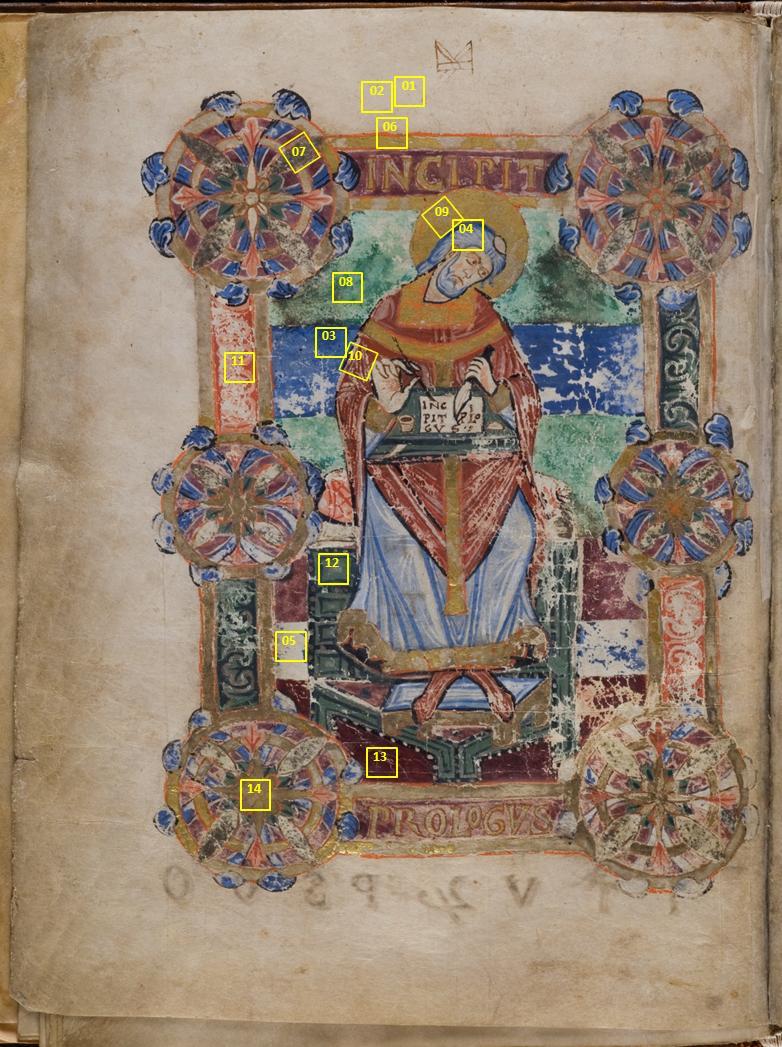 02 01
06
07
INCIPIT
09
04
08
03
10
11
INC
PIT
GVS
12
05
13
14
PROLOGVS